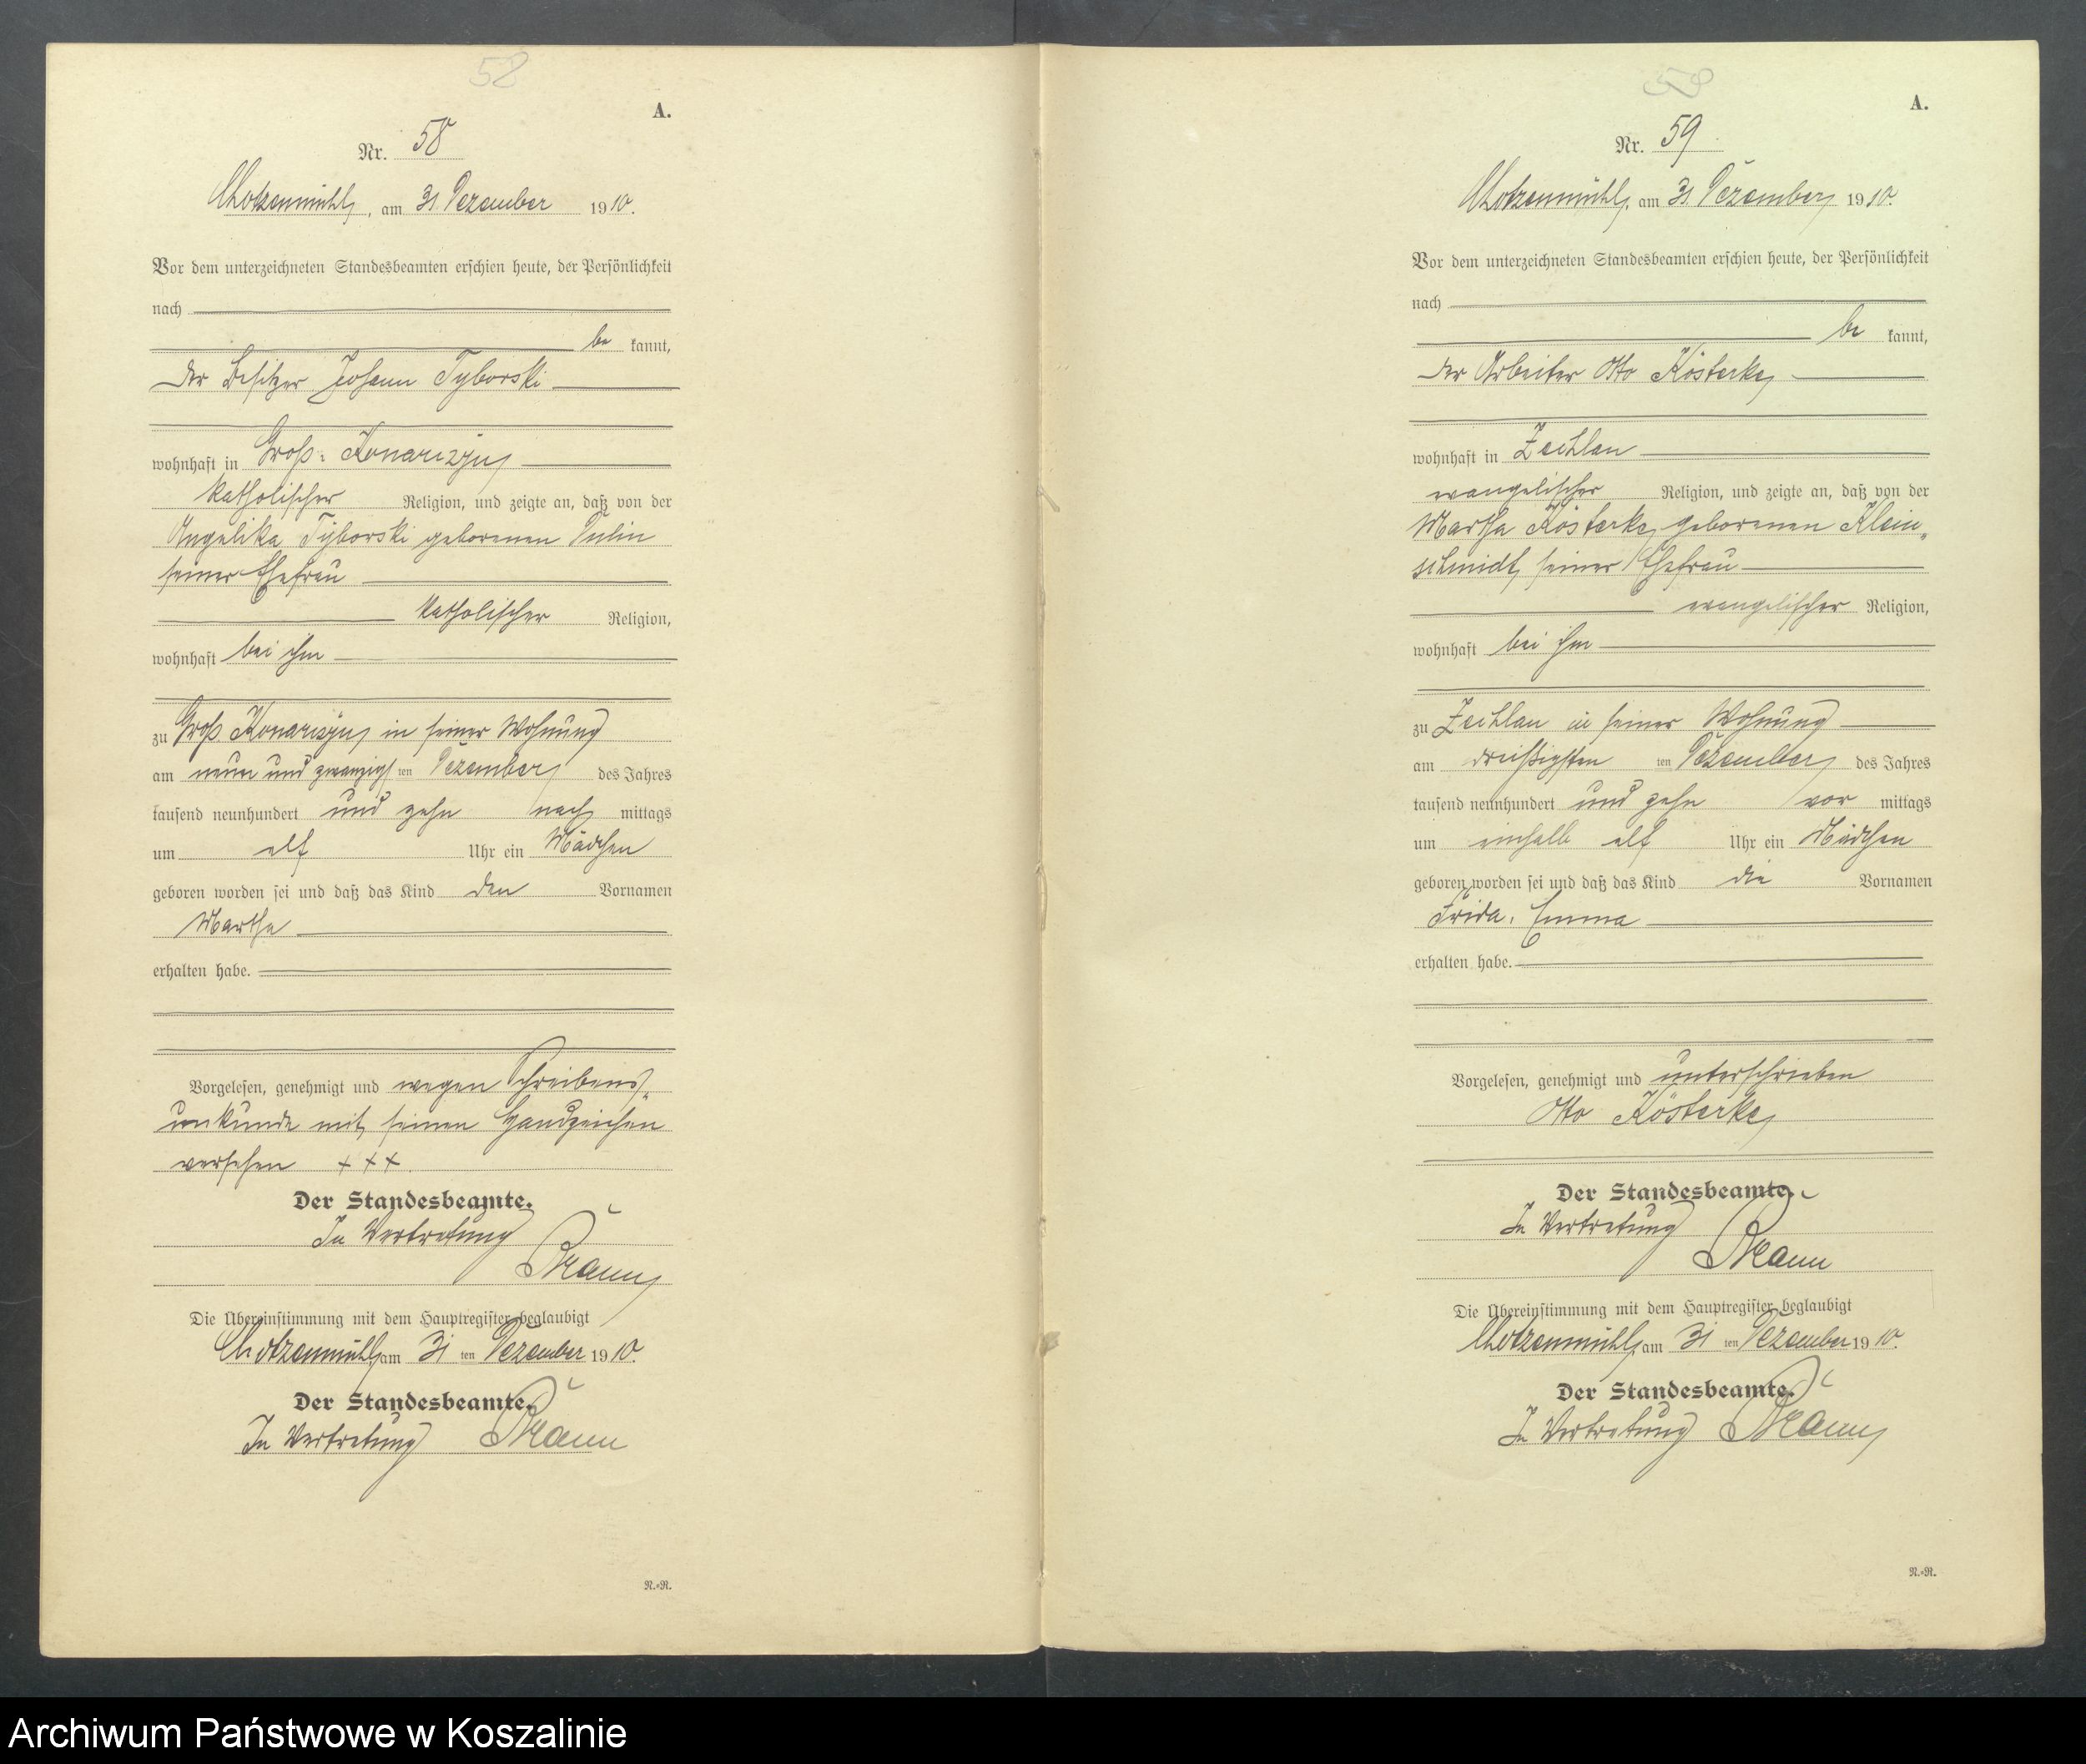 58
A.
Nr. 58
Chotzenmühl, am 31 Dezember 1910.
Vor dem unterzeichneten Standesbeamten erschien heute, der Persönlichkeit
nach
be kannt,
der Besitzer Johann Tyborski
wohnhaft in Groß-Konarczyn
katholischer Religion, und zeigte an, daß von der
Angelika Tyborski geborenen
seiner Ehefrau
katholischer Religion,
wohnhaft bei ihm
zu Groß Konarczyn in seiner Wohnung
am neun und zwanzigsten Dezember des Jahres
tausend neunhundert und zehn nach mittags
um elf Uhr ein Mädchen
geboren worden sei und daß das Kind den Vornamen
Martha
erhalten habe.
Vorgelesen, genehmigt und wegen Schreibens-
unkunde mit seinen Handzeichen
versehen + + +.
Der Standesbeamte.
In Vertretung
Die Übereinstimmung mit dem Hauptregister beglaubigt
Chotzenmühl am 31 ten Dezember 1910.
Der Standesbeamte.
In Vertretung
N.-R.
A.
Nr. 59
Chotzenmühl, am 31. Dezember 1910.
Vor dem unterzeichneten Standesbeamten erschien heute, der Persönlichkeit
nach
be kannt,
der Arbeiter Otto Kösterke
wohnhaft in Zechlau
evangelischer Religion, und zeigte an, daß von der
Martha Kösterke geborenen Klein-
schmidt, seiner Ehefrau
evangelischer Religion,
wohnhaft bei ihm
zu Zechlau in seiner Wohnung
am dreißigsten ten Dezember des Jahres
tausend neunhundert und zehn vor mittags
um einhalb elf Uhr ein Mädchen
geboren worden sei und daß das Kind die Vornamen
Frida, Emma
erhalten habe.
Vorgelesen, genehmigt und unterschrieben
Otto Kösterke
Der Standesbeamte.
In Vertretung
Die Übereinstimmung mit dem Hauptregister beglaubigt
Chotzenmühl, am 31 ten Dezember 1910.
Der Standesbeamte.
In Vertretung
N.-R.
Archiwum Państwowe w Koszalinie